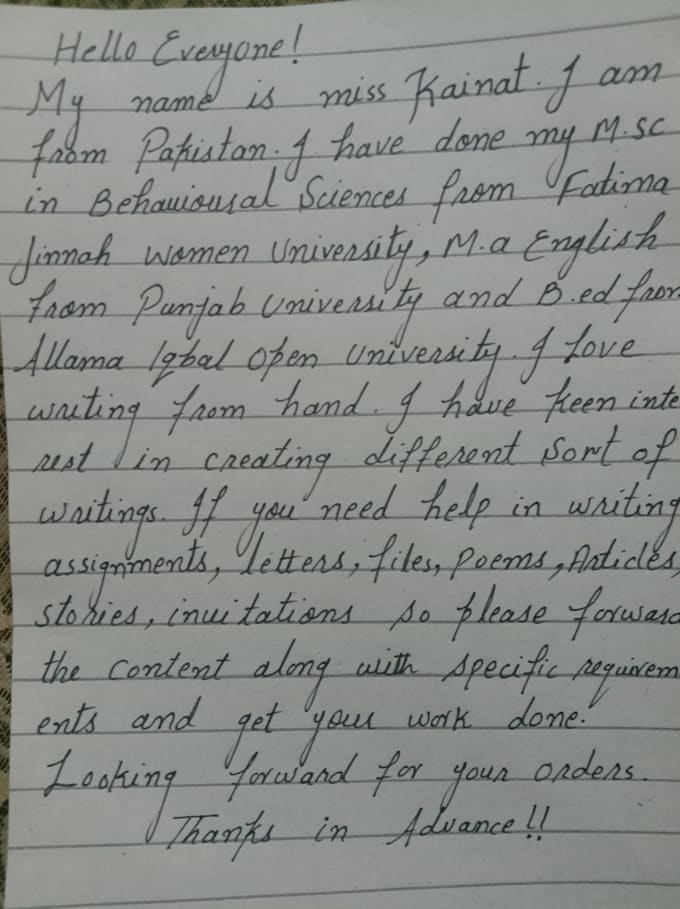 Hello Everyone!
My name is miss Kainat. I am
from Pakistan. I have done my M.sc
in Behavioural Sciences from Fatima
Jinnah women University, M.a English
from Punjab University and B.ed from
Allama Iqbal open University. I love
writing from hand. I have keen inte
rest in creating different sort of
writings. If you need help in writing
assignments, letters, files, poems, Articles,
stories, invitations so please forward
the content along with specific requirem
ents and get your work done.
Looking forward for your orders.
Thanks in Advance!!